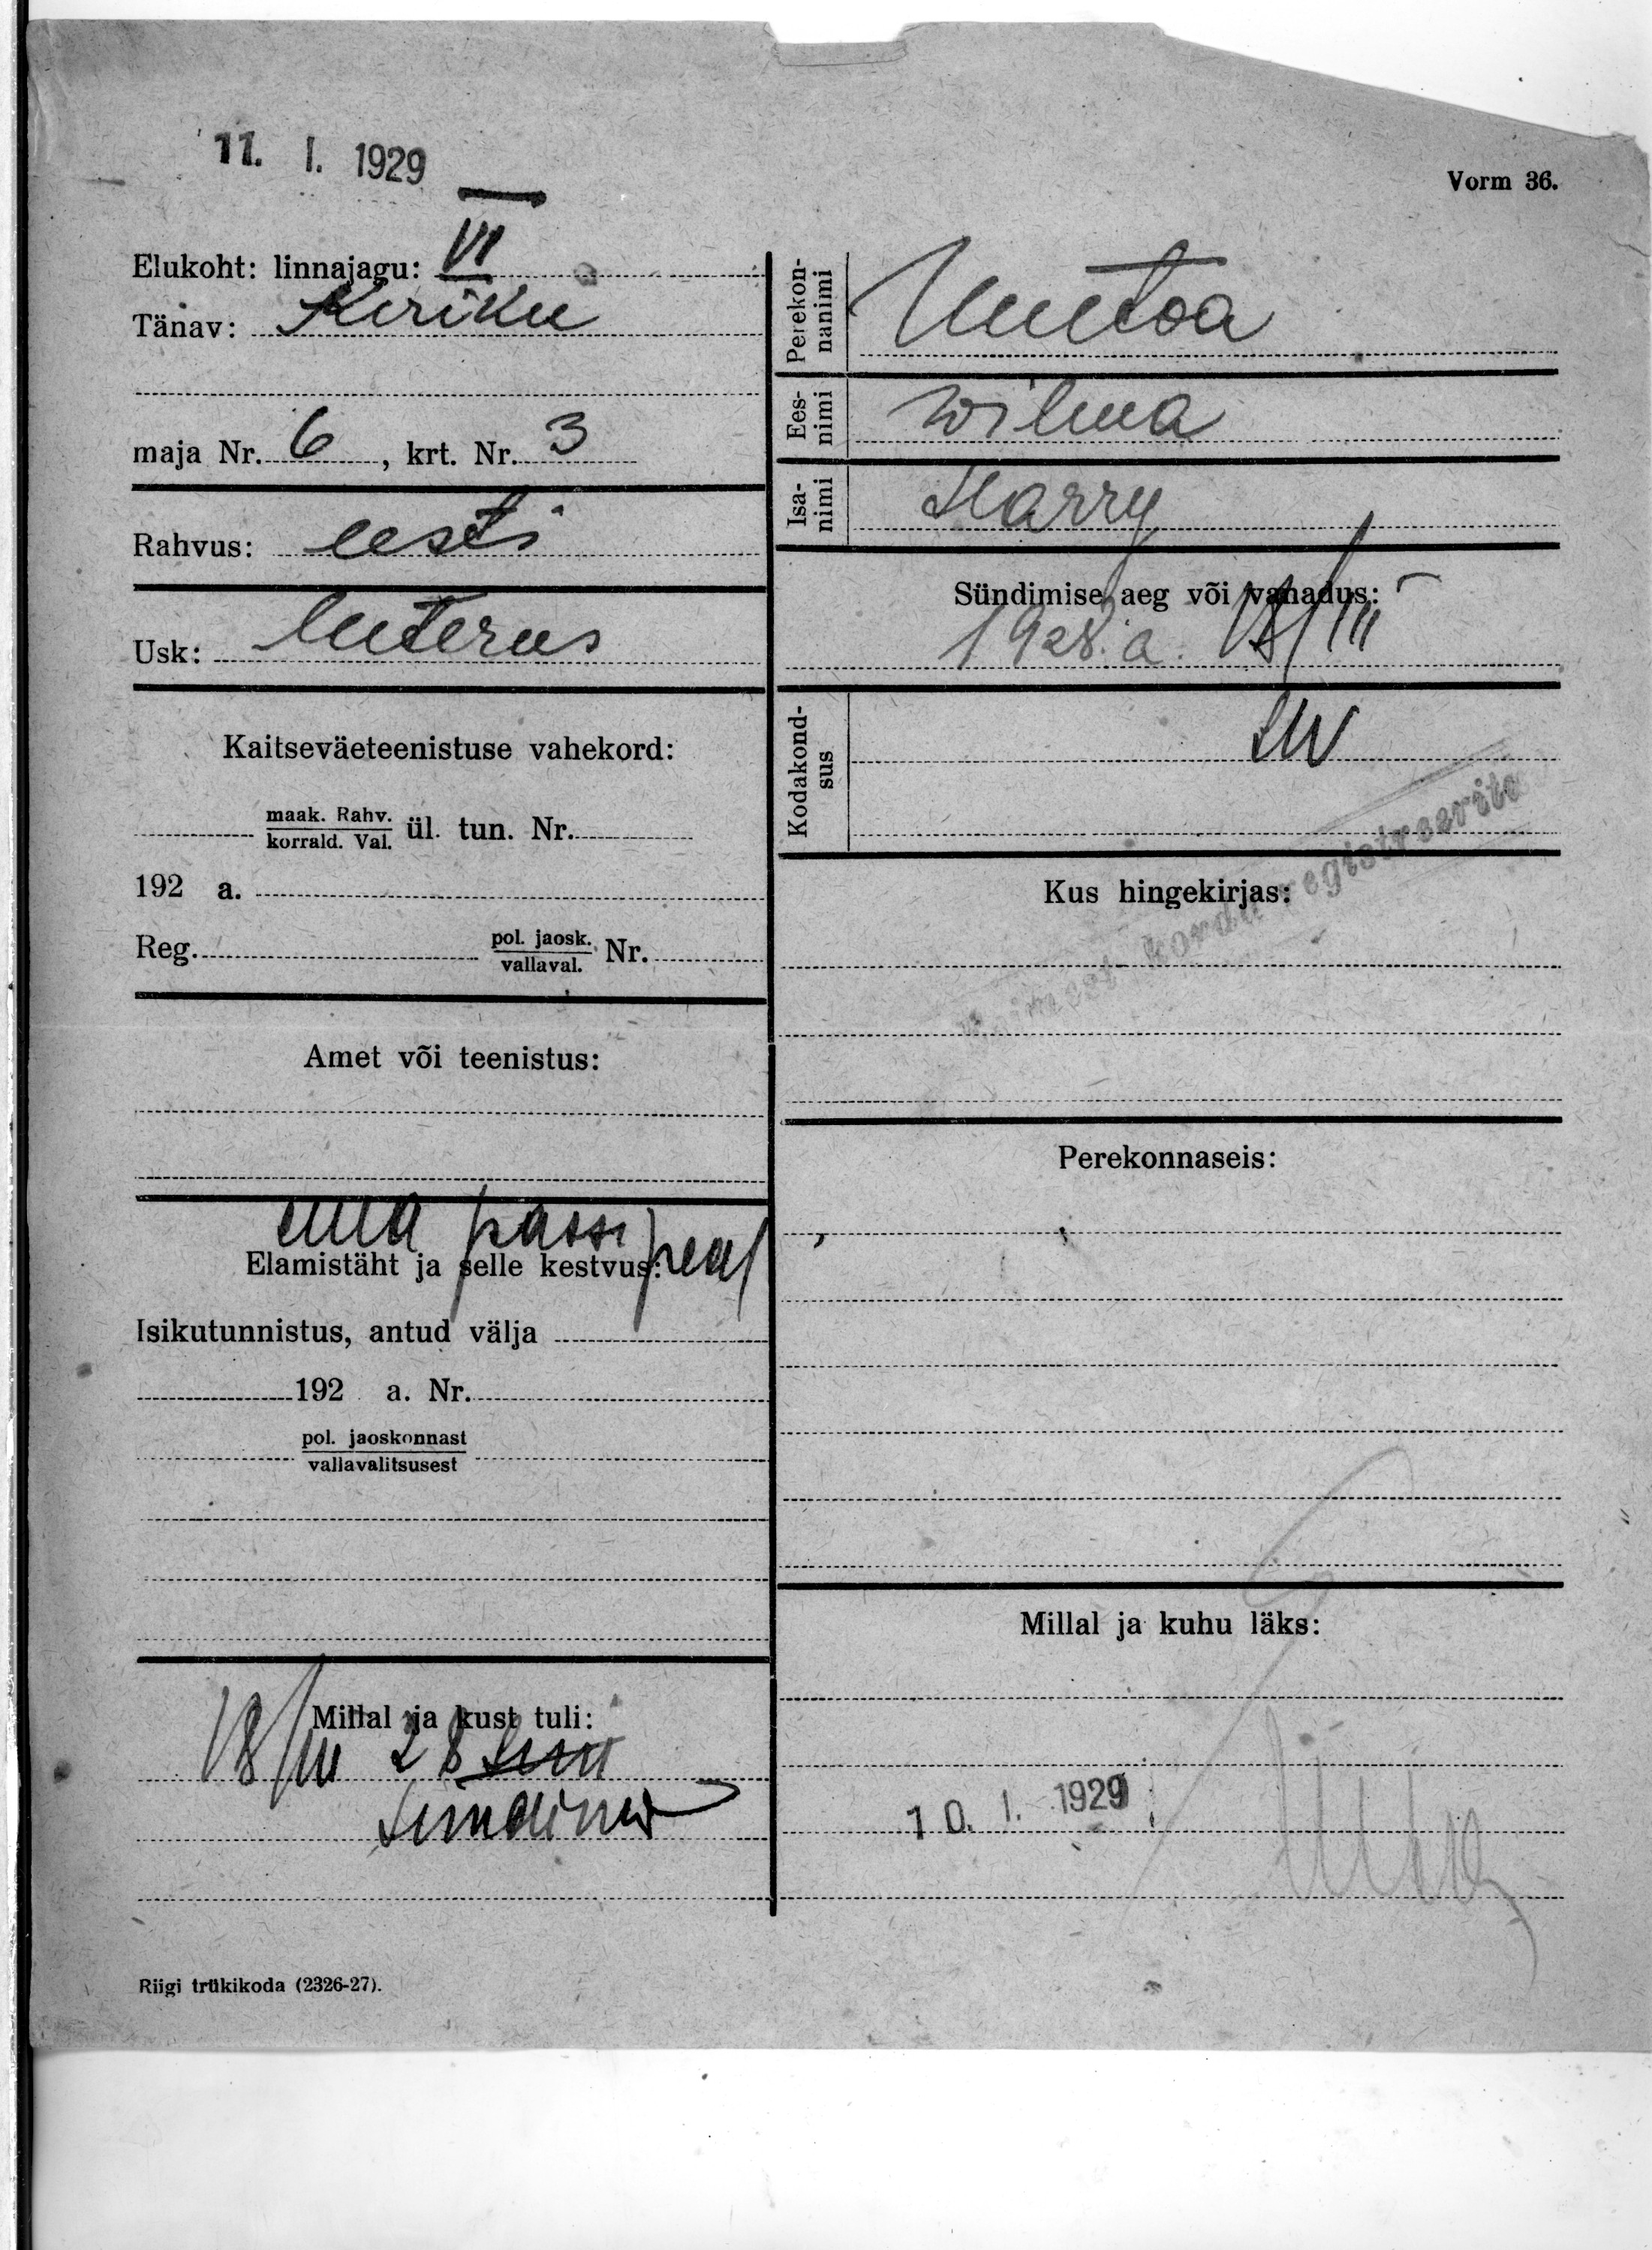 11. I. 1929
Vorm 36.
Elukoht: linnajagu: VI
Tänav: Kiriku
maja Nr. 6, krt. Nr. 3
Rahvus: eesti
Usk: luterus
Kaitseväeteenistuse vahekord:
maak. Rahv.
korrald. Val. ül. tun. Nr.
192 a.
Reg. pol. jaosk. Nr.
vallaval.
Amet või teenistus:
ema passi peal
Elamistäht ja selle kestvus:
Isikutunnistus, antud välja
192 a. Nr.
pol. jaoskonnast
vallavalitsusest
Millal ja kust tuli:
18/III 28
Sündinud
Riigi trükikoda (2326-27).
Perekon-
nanimi
Uuetoa
Ees-
nimi
Wilma
Isa-
nimi
Harry
Sündimise aeg või vanadus:
1928. a. 18/III
Kodakond-
sus
Kus hingekirjas:
registreeritud
Perekonnaseis:
Millal ja kuhu läks:
10. I. 1929